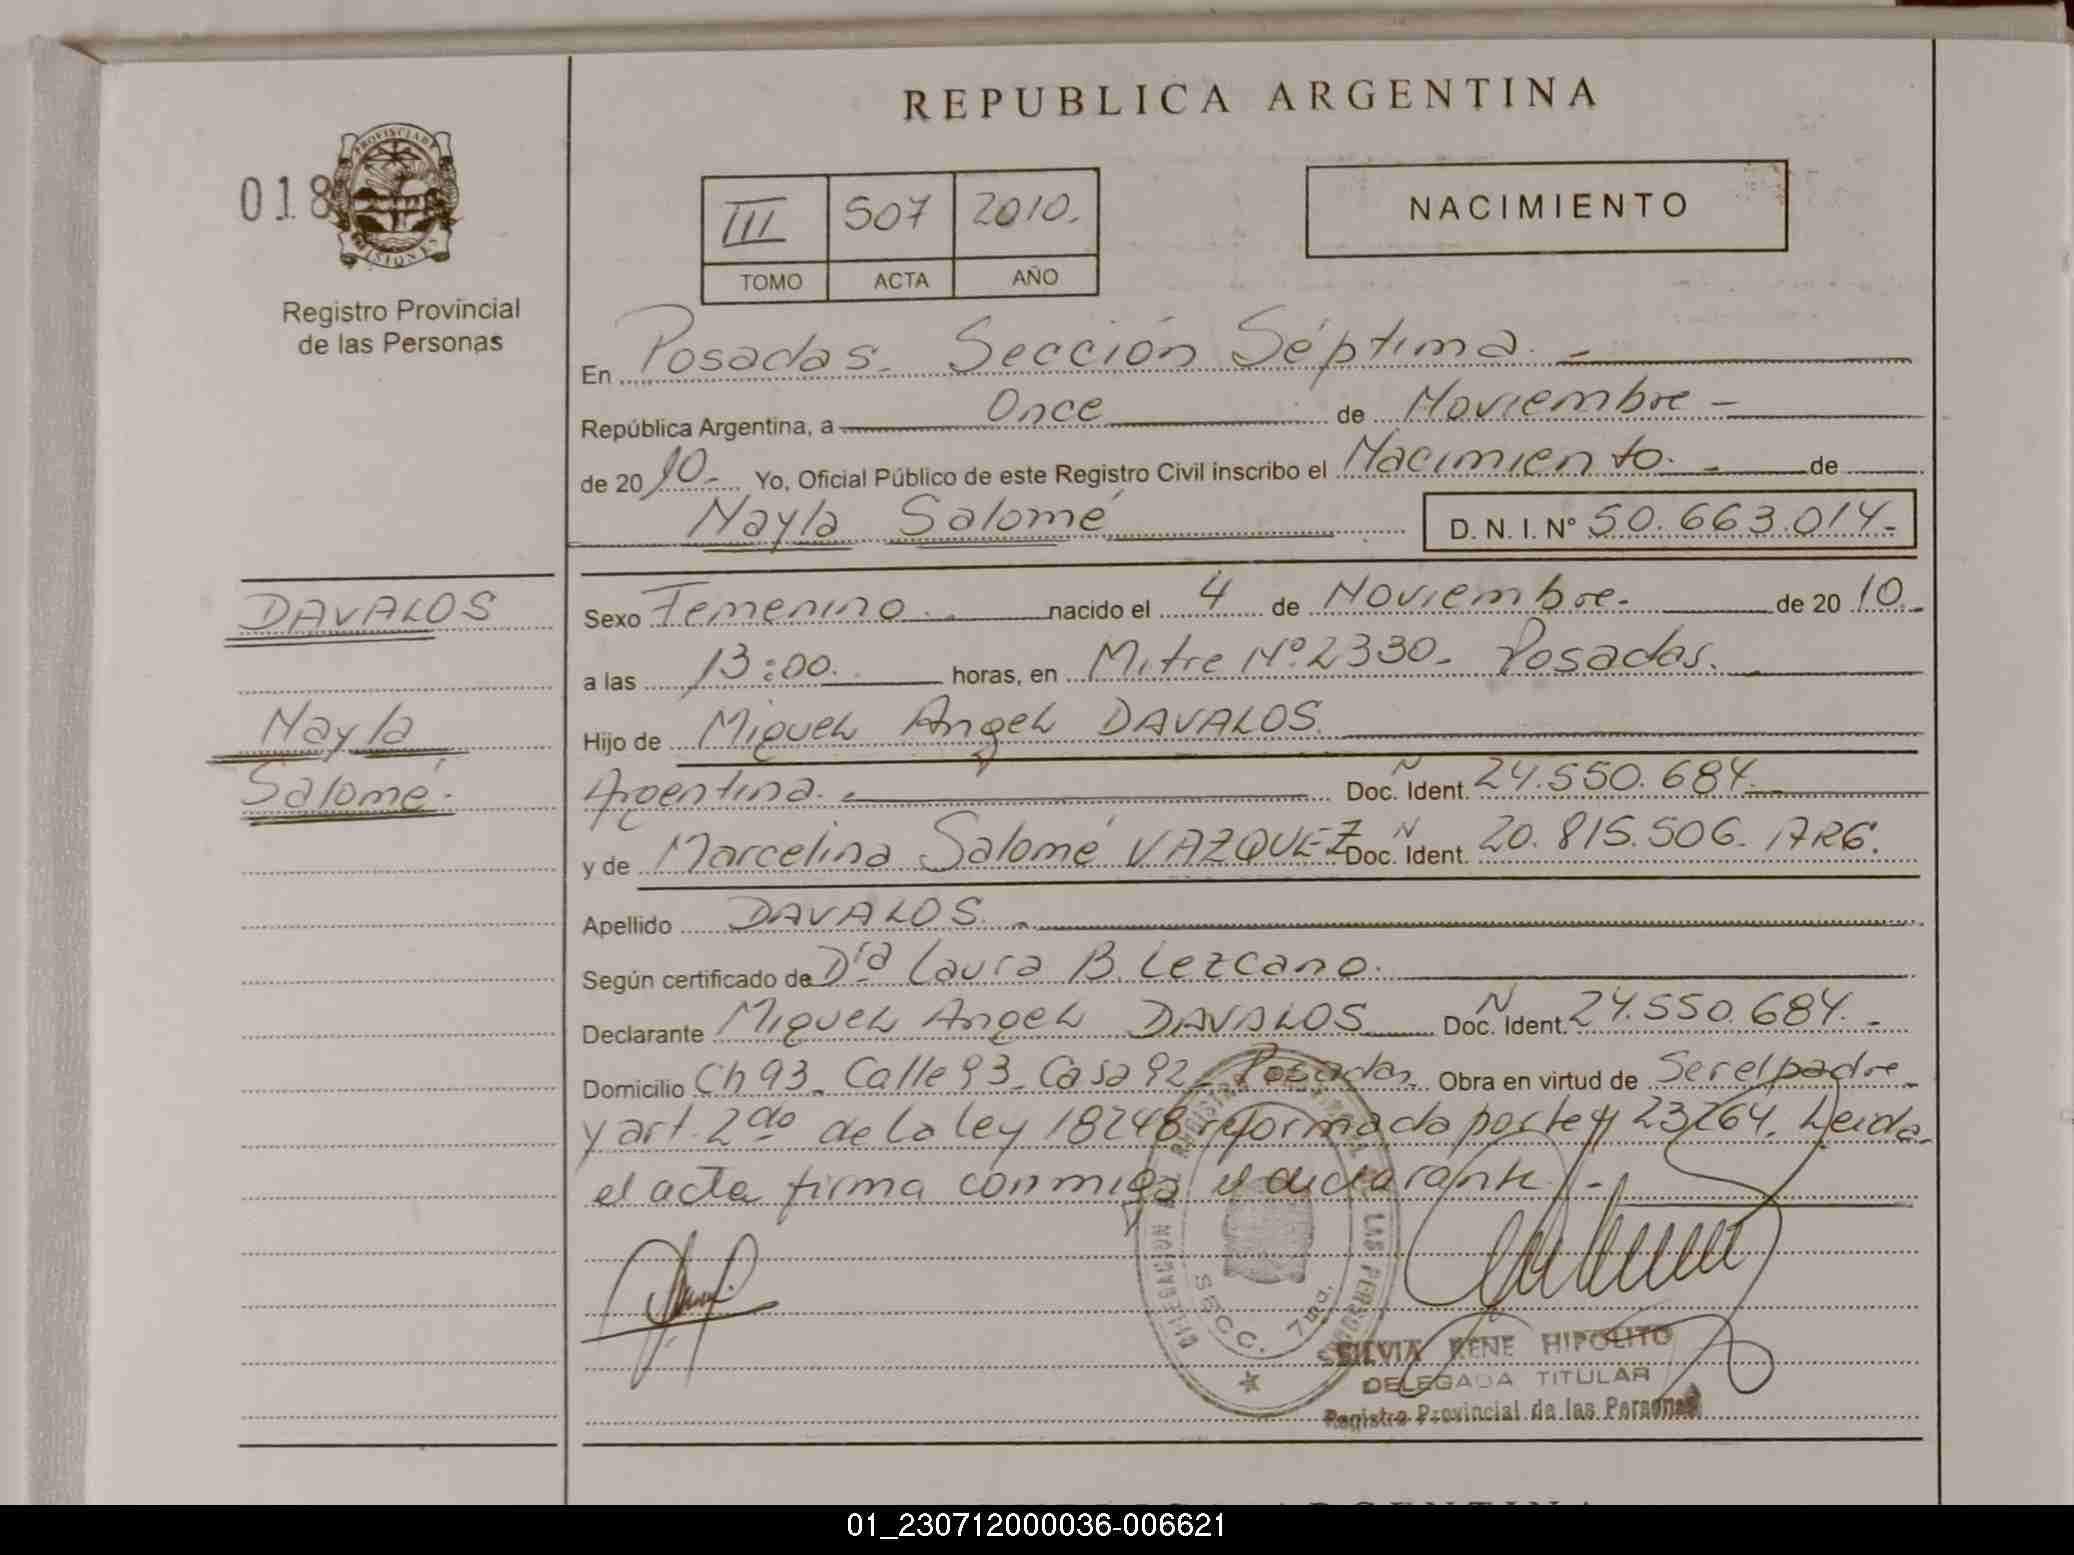 REPUBLICA ARGENTINA
018
PROVINCIA DE MISIONES
Registro Provincial
de las Personas
III 507 2010.
TOMO ACTA AÑO
NACIMIENTO
En Posadas. Sección Séptima. -
República Argentina, a Once de Noviembre -
de 2010- Yo, Oficial Público de este Registro Civil inscribo el Nacimiento. - de
Nayla Salomé D.N.I. N° 50.663.014.-
DAVALOS
Nayla
Salomé.
Sexo Femenino. nacido el 4 de Noviembre. de 20 10.-
a las 13:00. horas, en Mitre Nº 2330. Posadas.
Hijo de Miguel Angel DAVALOS.
Argentina. - Doc. Ident. N 24.550.684.-
y de Marcelina Salomé VAZQUEZ Doc. Ident. N 20.815.506. ARG.
Apellido DAVALOS. -
Según certificado de Dra Laura B. Lezcano.
Declarante Miguel Angel DAVALOS Doc. Ident. N 24.550.684. -
Domicilio Ch 93. Calle 93. Casa 92. Posadas. Obra en virtud de Ser el padre
y art. 2do de la ley 18248 reformado por ley 23264. Leida
el acta firma conmigo el declarante. -
DELEGACION REGISTRO PROVINCIAL DE LAS PERSONAS
SECC. 7ma.
SILVIA RENE HIPOLITO
DELEGADA TITULAR
Registro Provincial de las Personas
01_230712000036-006621